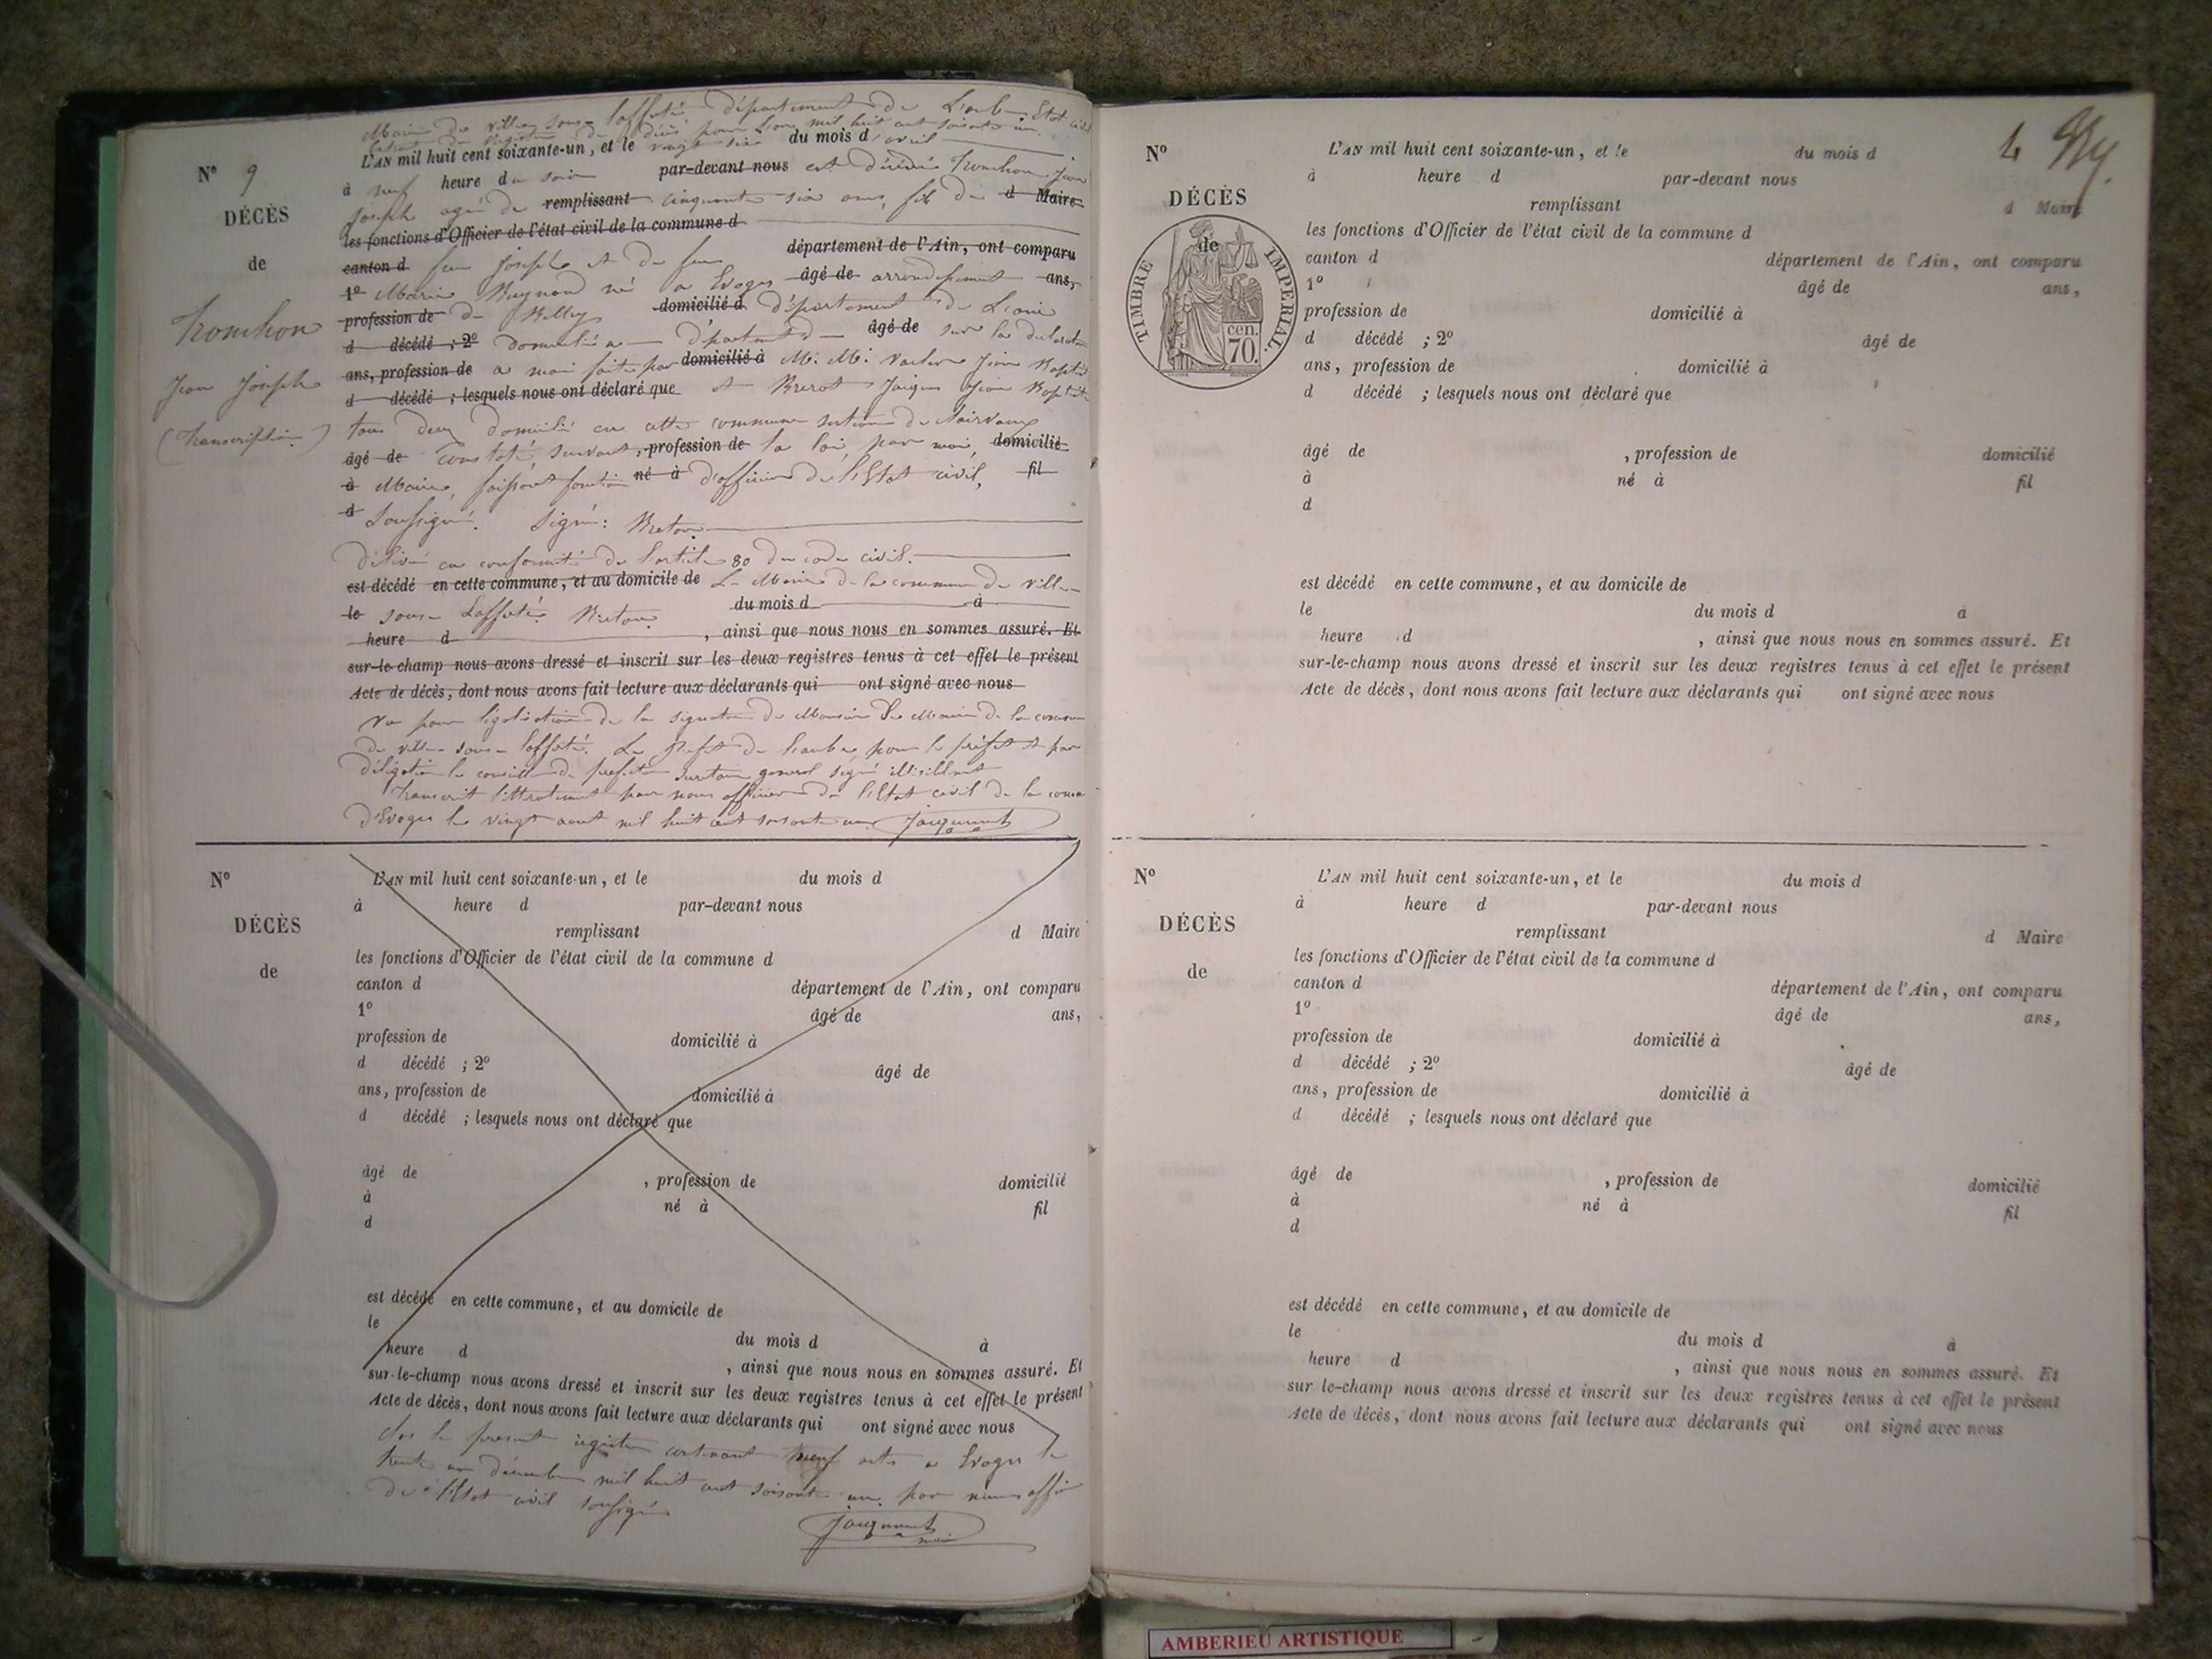 Mairie de Ville sous Laferté département de L'aube Etat civil
Extrait du Registre de décès pour L'an mil huit cent soixante un
N° 9
L'AN mil huit cent soixante-un, et le vingt six du mois d'avril
à neuf heure du soir par-devant nous est décédé Tronchon Jean
DÉCÈS
Joseph agé de remplissant cinquante six ans, fils de d Maire
les fonctions d'Officier de l'état civil de la commune d
de
canton d feu Joseph et de feue département de l'Ain, ont comparu
1° Marie Reynaud né a Evoges âgé de arrondissement ans,
Tronchon
profession de de Belley domicilié à département de L'ain
d décédé ; 2° domicilié a département d âgé de sur la déclaration
Jean Joseph
ans, profession de a moi faite par domicilié à M. M. Jean Baptiste
d décédé ; lesquels nous ont déclaré que et Jaques Jean Baptiste
(Transcription)
tous deux domicilié en cette commune section de Clairvaux
âgé de Constaté, suivant, profession de la loi, par moi, domicilié
à Maire, faissant fonction né à d'officier de l'Etat civil, fil
d Soussigné. Signé: Breton
Délivré en conformité de l'article 80 du code civil.
est décédé en cette commune, et au domicile de Le Maire de la commune de Ville
le sous Laferté. Breton du mois d à
heure d , ainsi que nous nous en sommes assuré. Et
sur-le-champ nous avons dressé et inscrit sur les deux registres tenus à cet effet le présent
Acte de décès, dont nous avons fait lecture aux déclarants qui ont signé avec nous
Vu pour légalisation de la signature de Monsieur Le Maire de la commune
de ville sous Laferté. Le Préfet de L'aube, pour le préfet et par
délégation le conseiller de préfecture secretaire general signé illisiblement
Transcrit littéralement par nous officier de l'Etat civil de la commune
d'Evoges le vingt aout mil huit cent soixante un Jacquemet
N°
L'AN mil huit cent soixante-un, et le du mois d
à heure d par-devant nous
DÉCÈS
remplissant d Maire
les fonctions d'Officier de l'état civil de la commune d
de
canton d département de l'Ain, ont comparu
1° âgé de ans,
profession de domicilié à
d décédé ; 2° âgé de
ans, profession de domicilié à
d décédé ; lesquels nous ont déclaré que
âgé de , profession de domicilié
à né à fil
d
est décédé en cette commune, et au domicile de
le du mois d à
heure d , ainsi que nous nous en sommes assuré. Et
sur-le-champ nous avons dressé et inscrit sur les deux registres tenus à cet effet le présent
Acte de décès, dont nous avons fait lecture aux déclarants qui ont signé avec nous
clos le present registre contenant neuf acts a Evoges le
trente un décembre mil huit cent soixante un par nous officier
de l'Etat civil soussigné
Jacquemet
maire
4
N°
L'AN mil huit cent soixante-un, et le du mois d
à heure d par-devant nous
DÉCÈS
remplissant d Maire
les fonctions d'Officier de l'état civil de la commune d
de
TIMBRE IMPERIAL.
cen.
70.
canton d département de l'Ain, ont comparu
1° âgé de ans,
profession de domicilié à
d décédé ; 2° âgé de
ans, profession de domicilié à
d décédé ; lesquels nous ont déclaré que
âgé de , profession de domicilié
à né à fil
d
est décédé en cette commune, et au domicile de
le du mois d à
heure d , ainsi que nous nous en sommes assuré. Et
sur-le-champ nous avons dressé et inscrit sur les deux registres tenus à cet effet le présent
Acte de décès, dont nous avons fait lecture aux déclarants qui ont signé avec nous
N°
L'AN mil huit cent soixante-un, et le du mois d
à heure d par-devant nous
DÉCÈS
remplissant d Maire
les fonctions d'Officier de l'état civil de la commune d
de
canton d département de l'Ain, ont comparu
1° âgé de ans,
profession de domicilié à
d décédé ; 2° âgé de
ans, profession de domicilié à
d décédé ; lesquels nous ont déclaré que
âgé de , profession de domicilié
à né à fil
d
est décédé en cette commune, et au domicile de
le du mois d à
heure d , ainsi que nous nous en sommes assuré. Et
sur le-champ nous avons dressé et inscrit sur les deux registres tenus à cet effet le présent
Acte de décès, dont nous avons fait lecture aux déclarants qui ont signé avec nous
AMBERIEU ARTISTIQUE